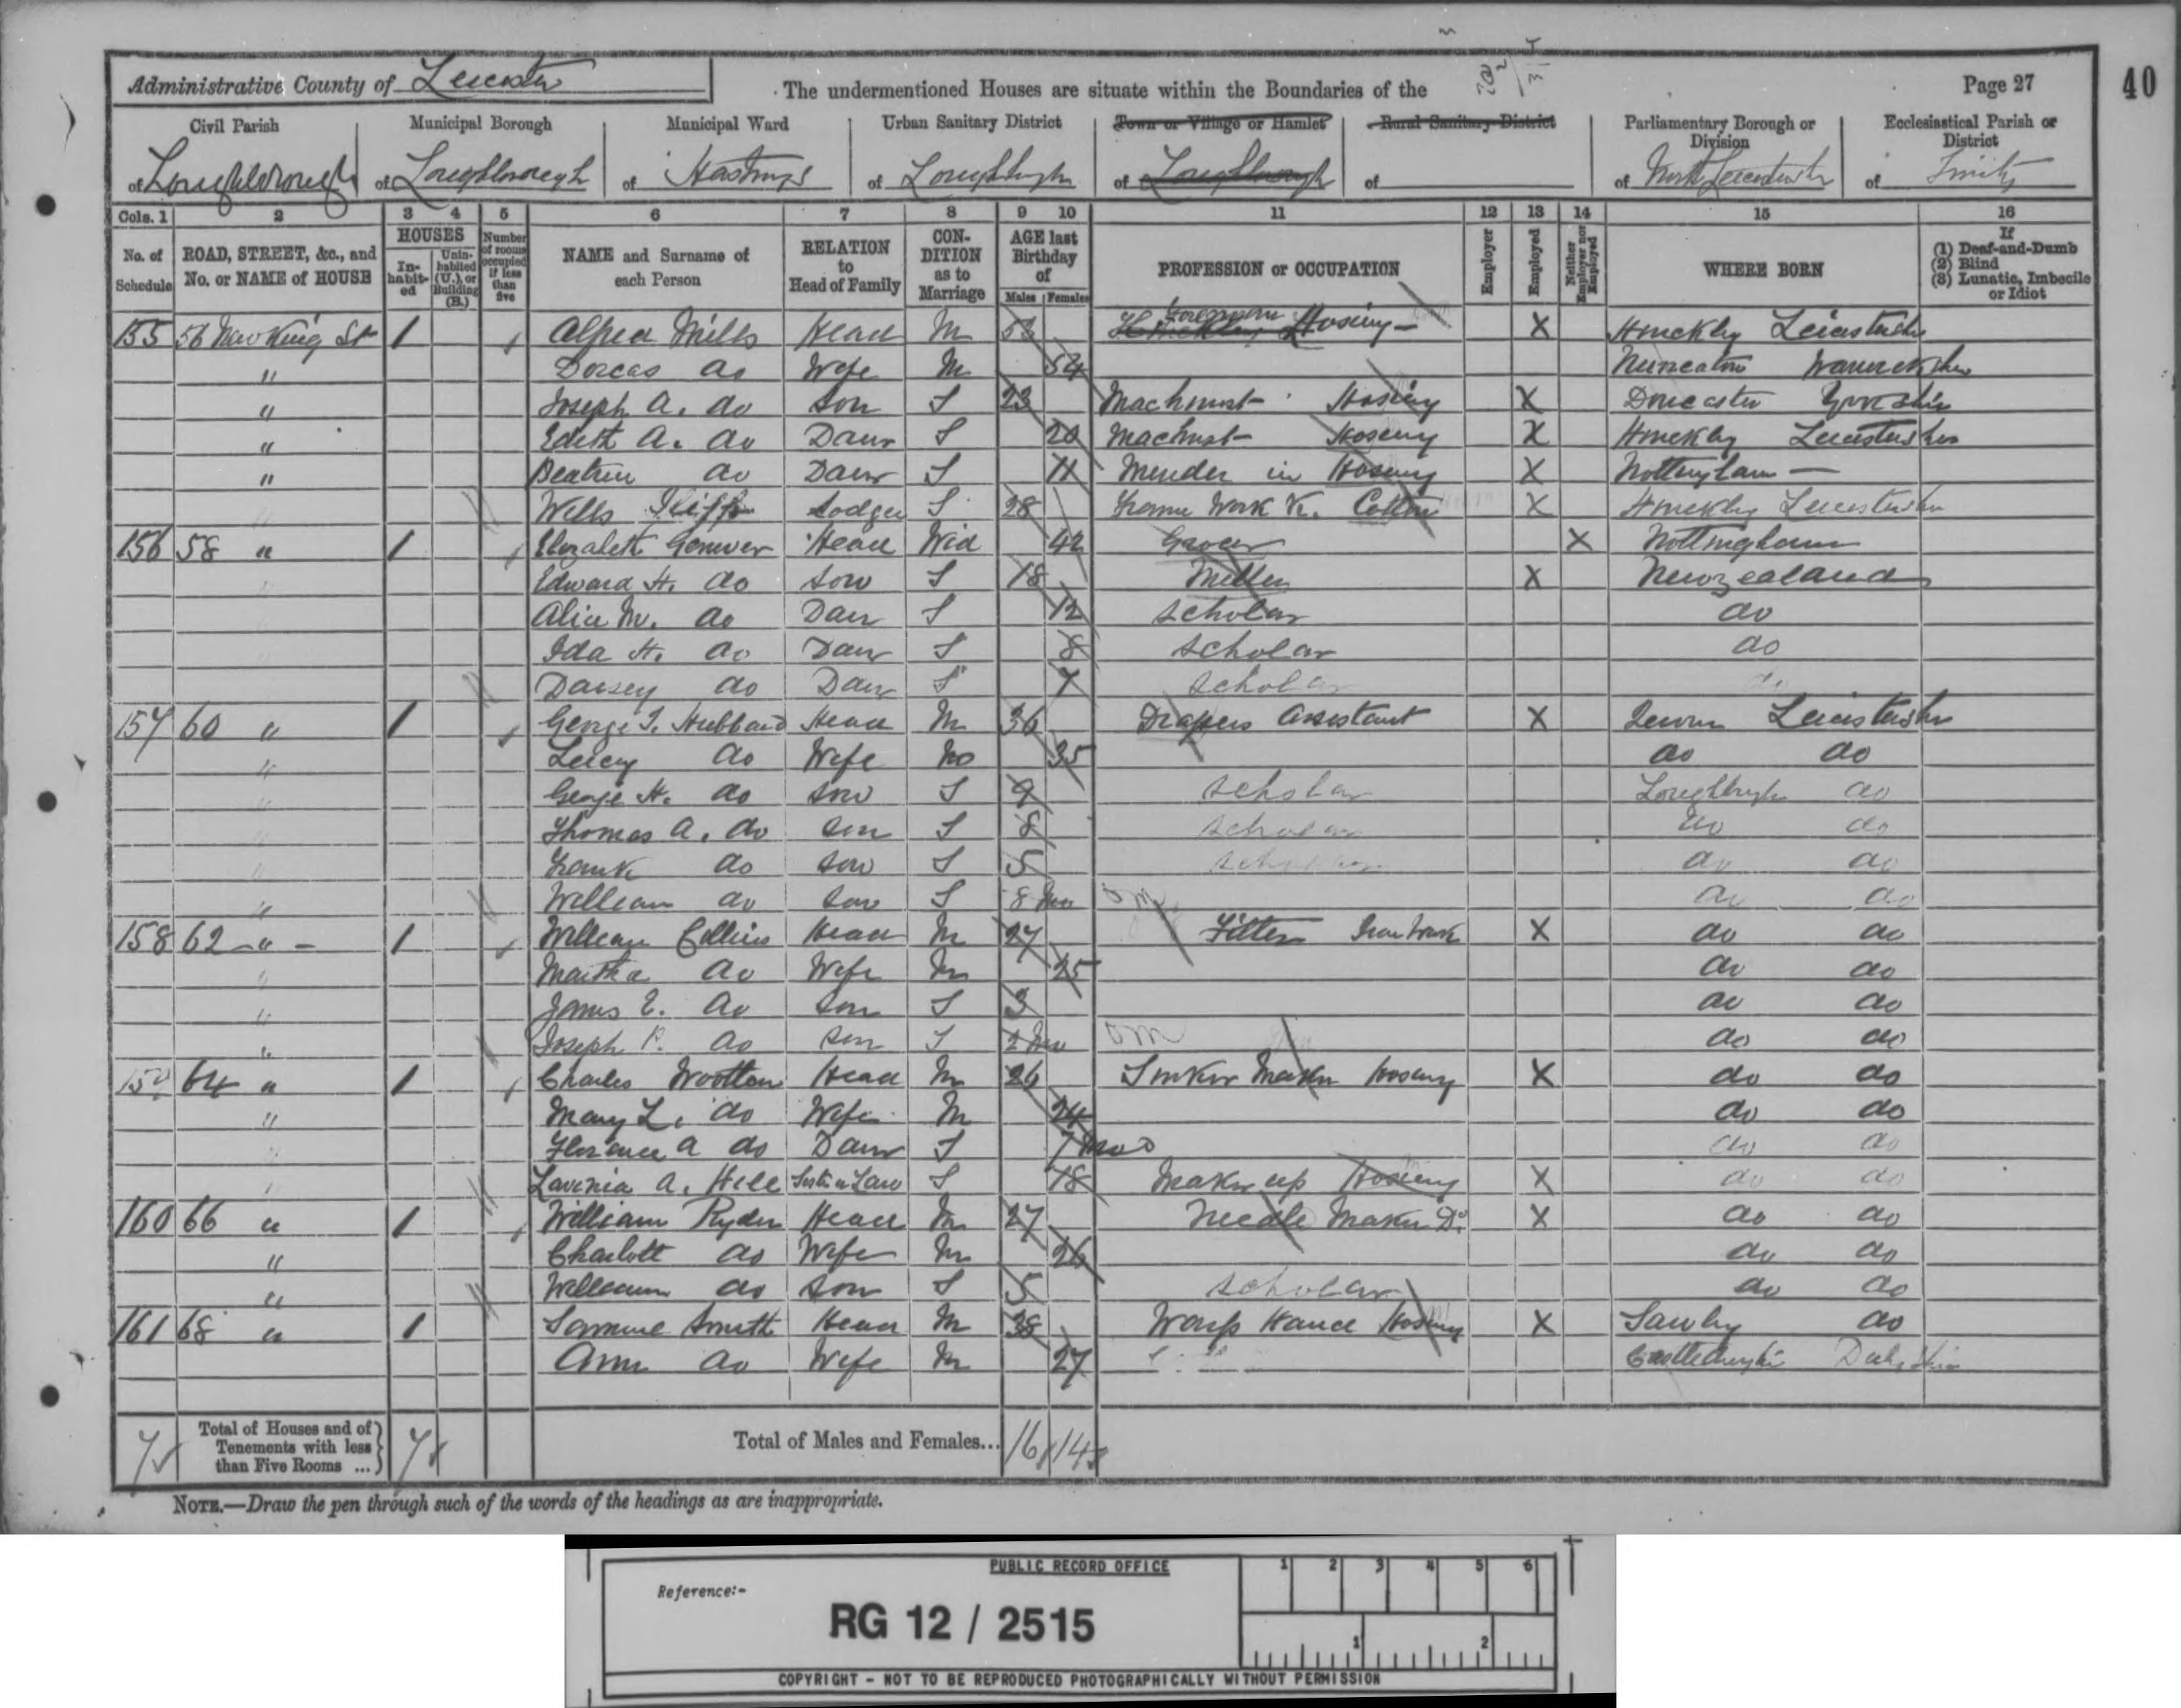 40
Administrative County of Leicester
The undermentioned Houses are situate within the Boundaries of the
Page 27
Civil Parish
of Loughborough
Municipal Borough
of Loughborough
Municipal Ward
of Hastings
Urban Sanitary District
of Loughbugh
Town or Village or Hamlet
of Loughborough
Rural Sanitary District
of
Parliamentary Borough or Division
of North Leicestersh
Ecclesiastical Parish or District
of Trinity
Cols. 1 2 3 4 5 6 7 8 9 10 11 12 13 14 15 16
No. of Schedule
ROAD, STREET, &c., and No. or NAME of HOUSE
HOUSES
Inhabited
Uninhabited (U.), or Building (B.)
Number of rooms occupied if less than five
NAME and Surname of each Person
RELATION to Head of Family
CONDITION as to Marriage
AGE last Birthday of
Males Females
PROFESSION or OCCUPATION
Employer
Employed
Neither Employer nor Employed
WHERE BORN
If
(1) Deaf-and-Dumb
(2) Blind
(3) Lunatic, Imbecile or Idiot
155 56 New King St 1 Alfred Mills Head M Foreman Hosiery X Hinckley Leicestershr
" Dorcas do Wife M 54 Nuneaton Warwickshr
" Joseph A. do Son S 23 Machinist Hosiery X Doncaster Yorkshir
" Edith A. do Daur S 20 Machnist Hosiery X Hinckley Leicestershr
" Beatrice do Daur S 11 Mender in Hosiery X Nottingham
Wills Iliffe Lodger S 28 Frame Work K. Cotton X Hinckley Leicestershr
156 58 " 1 Elizabeth Head Wid 42 Grocer X Nottingham
Edward H. do Son S 18 Miller X Newzealand
Alice M. do Daur S 12 Scholar do
Ida H. do Daur S 8 Scholar do
Daisey do Daur S 7 Scholar do
157 60 " 1 George T. Hubbard Head M 36 Drapers Assistant X Leicestershr
" Lucy do Wife M 35 do do
" George H. do Son S 9 Scholar Loughbugh do
" Thomas A. do Son S 8 Scholar do do
" Frank do Son S 5 Scholar do do
" William do Son S 8 Mo do do
158 62 " 1 William Collins Head M 27 Fitter Iron Work X do do
" Martha do Wife M 25 do do
" James E. do Son S 3 do do
" Joseph P. do Son S 2 Mo do do
159 64 " 1 Charles Wootton Head M 26 Sinker Maker Hosiery X do do
" Mary L. do Wife M 24 do do
" Florence A do Daur S 7 Mos do do
" Lavinia A. Hill Sister in Law S 18 Maker up Hosiery X do do
160 66 " 1 William Ryder Head M 27 Needle Maker Do X do do
" Charlott do Wife M 26 do do
" William do Son S 5 Scholar do do
161 68 " 1 Samuel Smith Head M 38 Warp Hand Hosiery X Sawley do
Ann do Wife M 27
7 Total of Houses and of Tenements with less than Five Rooms ... 7
Total of Males and Females... 16 14
NOTE.—Draw the pen through such of the words of the headings as are inappropriate.
PUBLIC RECORD OFFICE
1 2 3 4 5 6
Reference:-
RG 12 / 2515
1 2
COPYRIGHT - NOT TO BE REPRODUCED PHOTOGRAPHICALLY WITHOUT PERMISSION